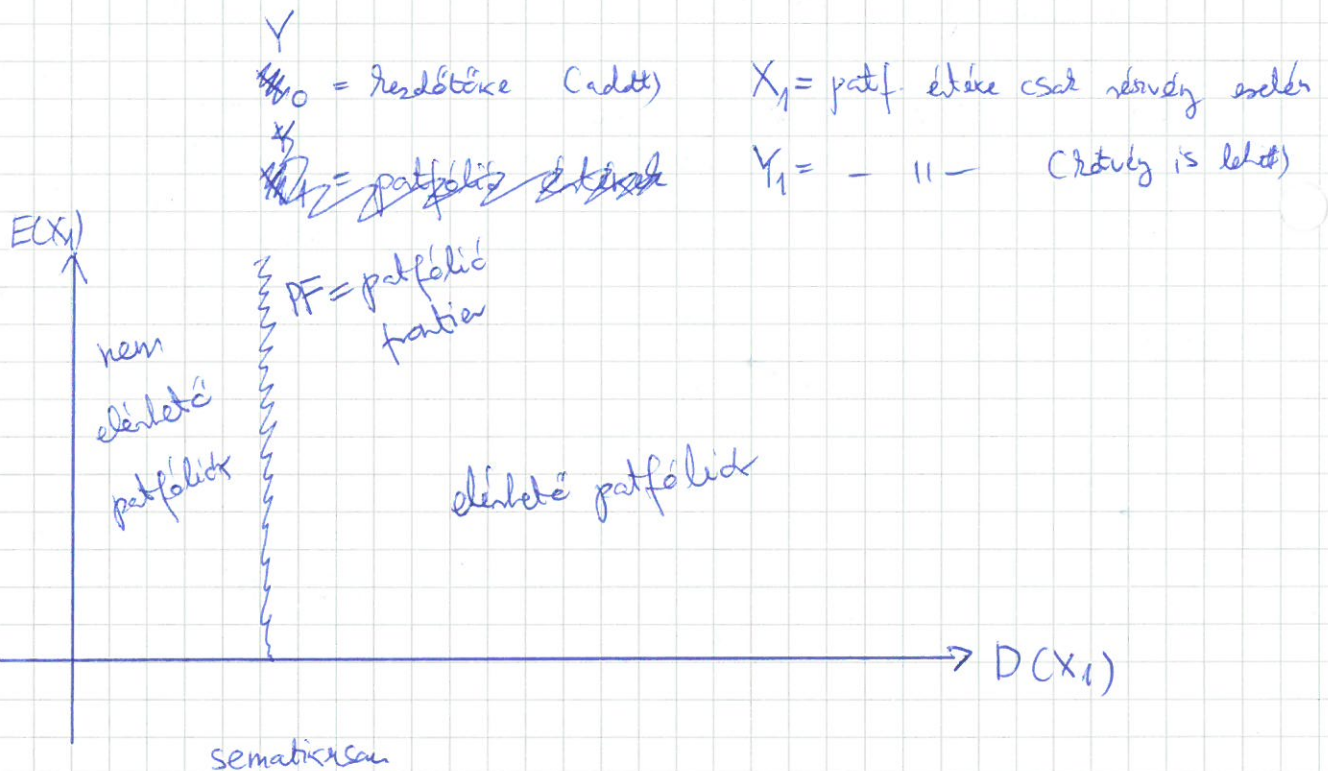 Y₀ = kezdőtőke (adott)
X₁ = portf. értéke csak részvény esetén
Y₁ = – 11 – (kötvény is lehet)
E(X₁)
PF = portfólió
frontier
nem
elérhető
portfóliók
elérhető portfóliók
D(X₁)
sematikusan